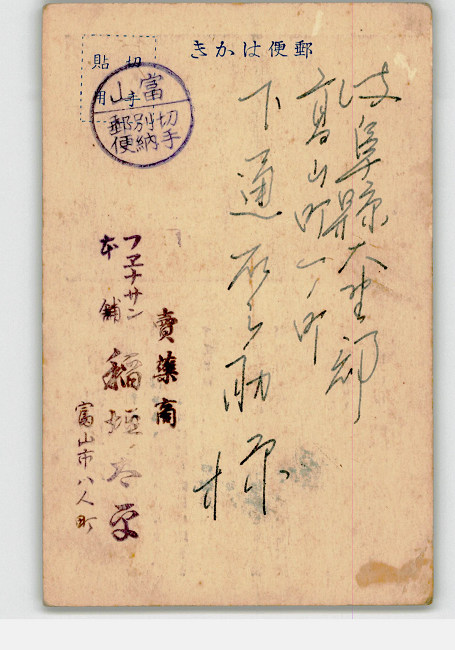 きかは便郵
切手
貼用
富山
切手
別納
郵便
岐阜縣大野郡
高山町一ノ町
下通
様
賣藥商
フヱナサン
本舗
稲垣
富山市八人町